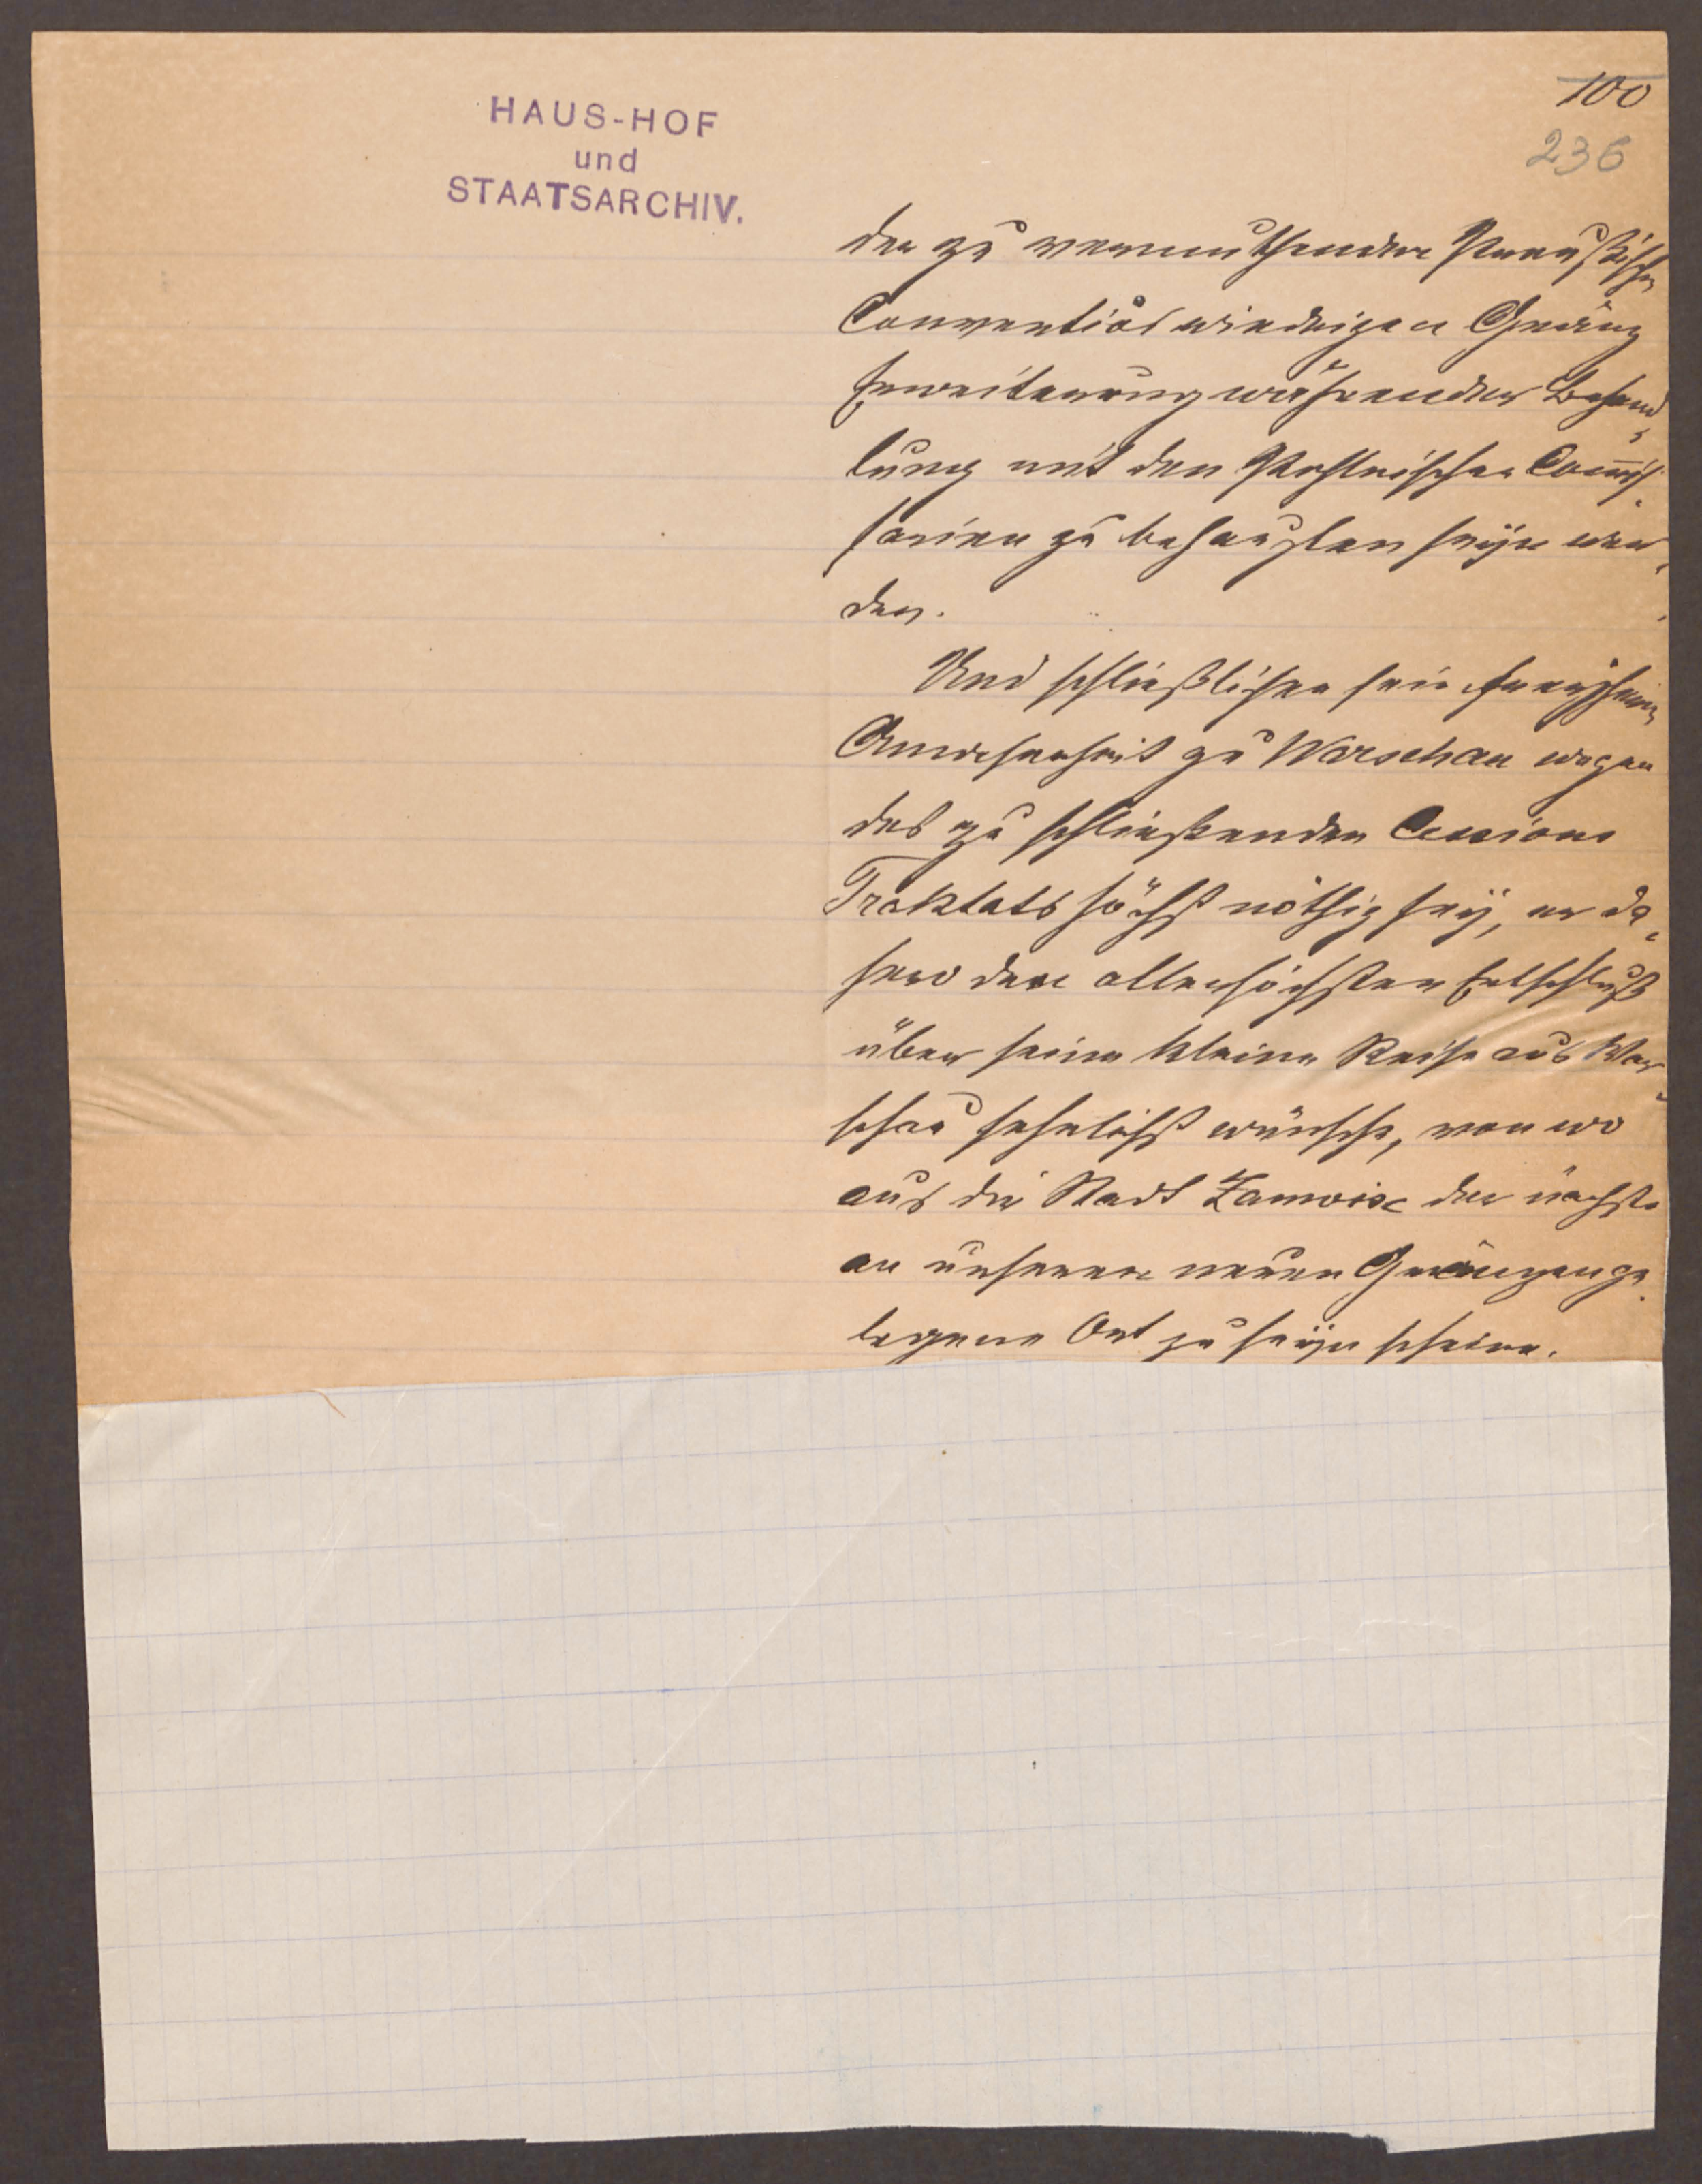 HAUS-HOF
und
STAATSARCHIV.
100
236
der zu vermuthender Preußischen
Conventionswiedrigen Gränz
Erweiterung während der Behand„
lung mit den Pohlnischen Com̅is„
sarien zu behaupten seyn wer„
den.
Und schließlichen seine
Anwesenheit zu Warschau wegen
des zu schließenden Cessions
Traktats höchst nöthig sey, er da„
hero den allerhöchsten Entschluß
über seine kleine Reise aus War„
schau sehnlichst wünsche, von wo
aus die Stadt Zamoisc der nächste
an unseren neuen Gränzen ge„
legene Ort zu seyn scheine.